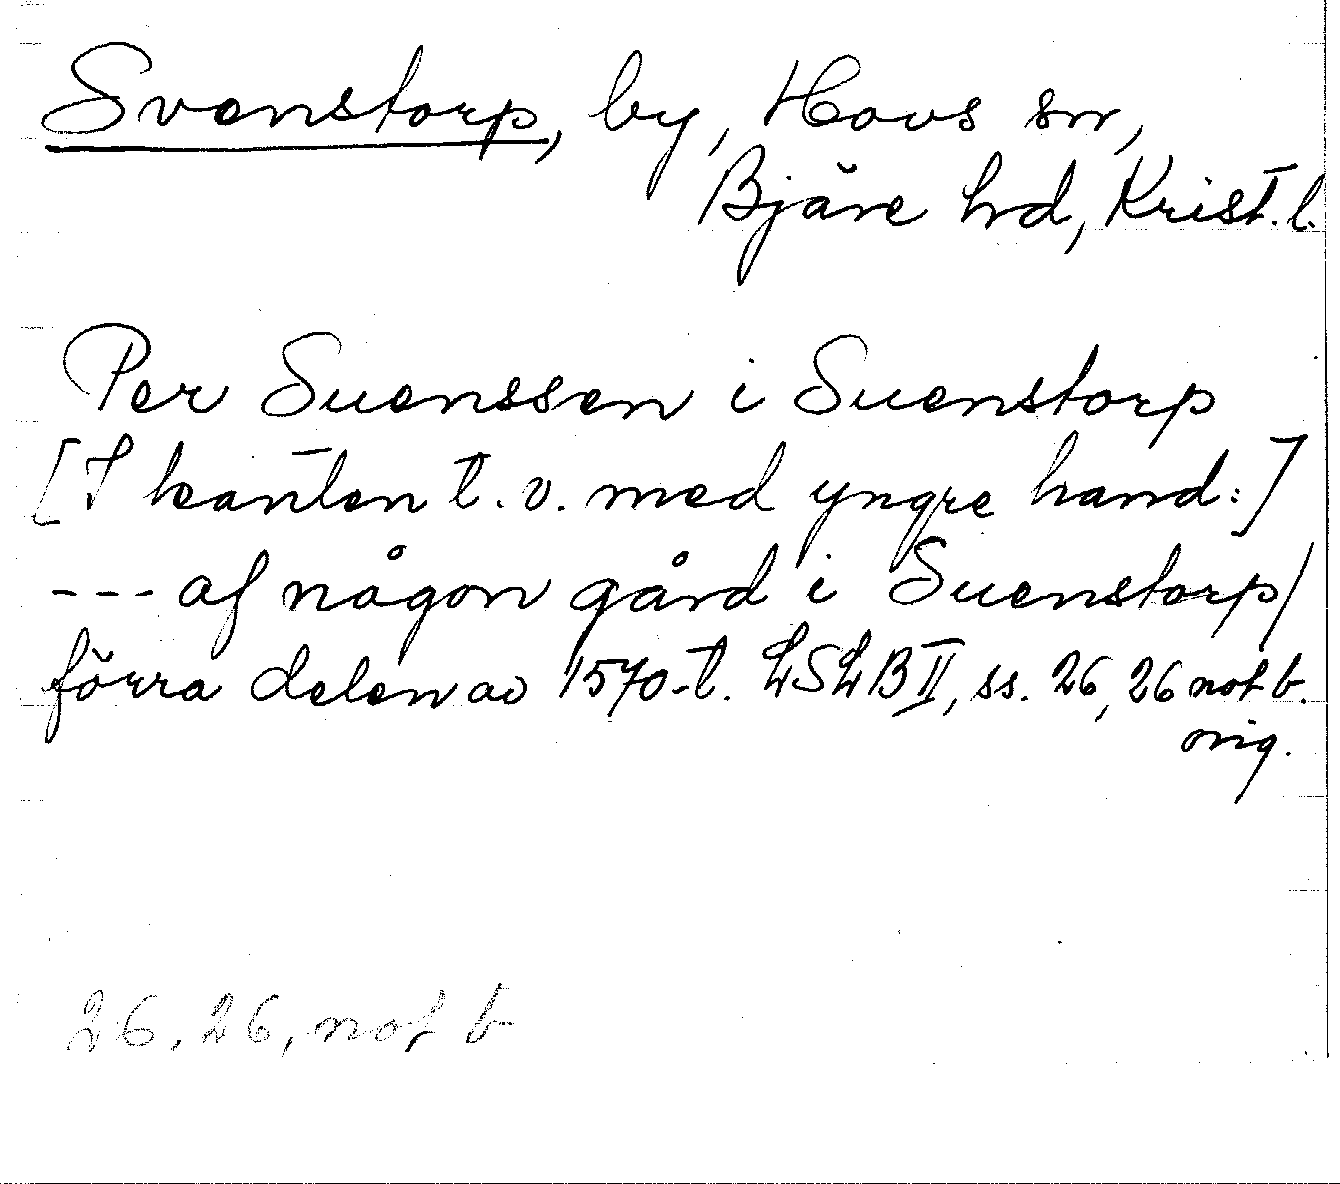 Svenstorp, by, Hovs sn,
Bjäre hd, Krist. l.
Per Suenssen i Suenstorp
[I kanten t. v. med yngre hand:]
--- af någon gård i Suenstorp/
förra delen av 1570-t. LSLB II, ss. 26, 26 not b.
orig.
26, 26, not b